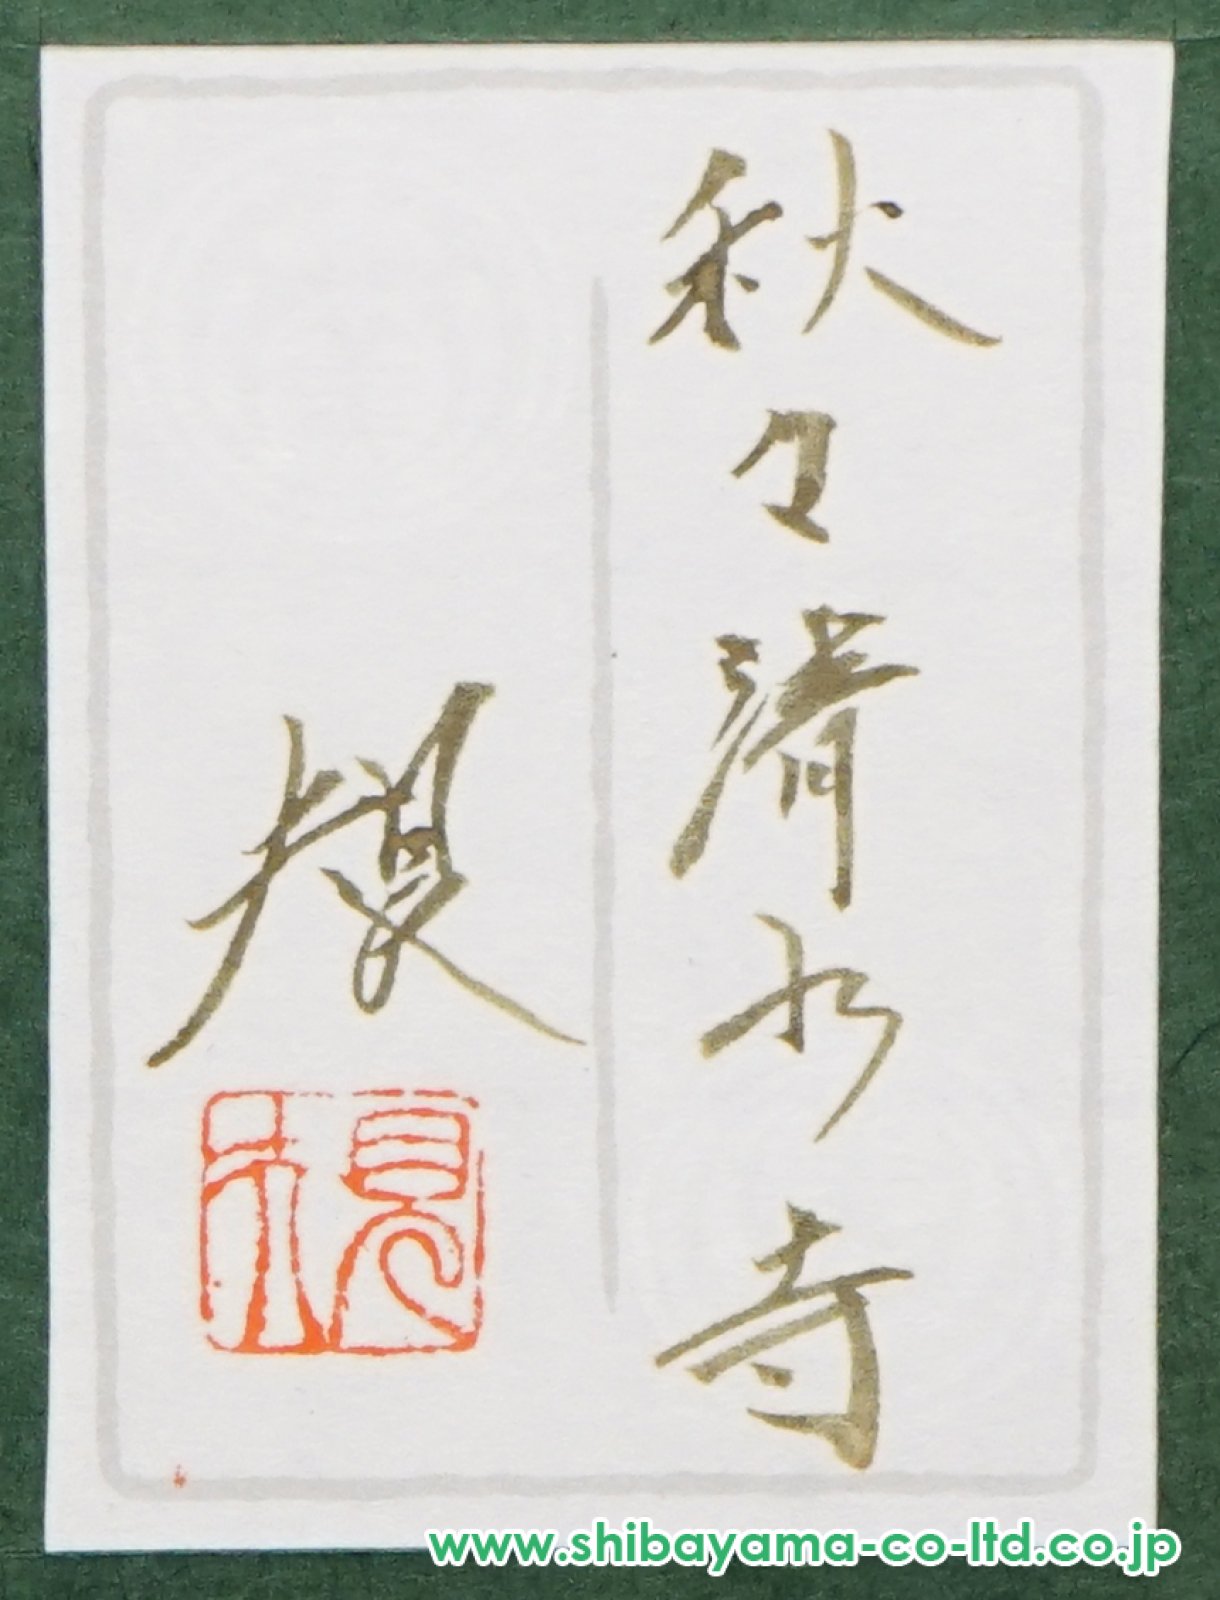 秋々清水寺
www.shibayama-co-ltd.co.jp